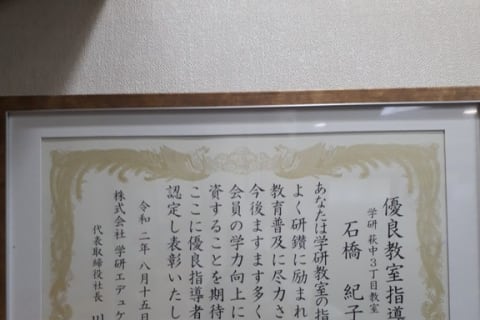 優良教室指導
学研 萩中3丁目教室
石橋 紀子
あなたは学研教室の指
よく研鑽に励まれ
教育普及に尽力さ
今後ますます多く
会員の学力向上に
資することを期待
ここに優良指導者
認定し表彰いたし
令和二年八月十五日
株式会社 学研エデュケ
代表取締役社長 川